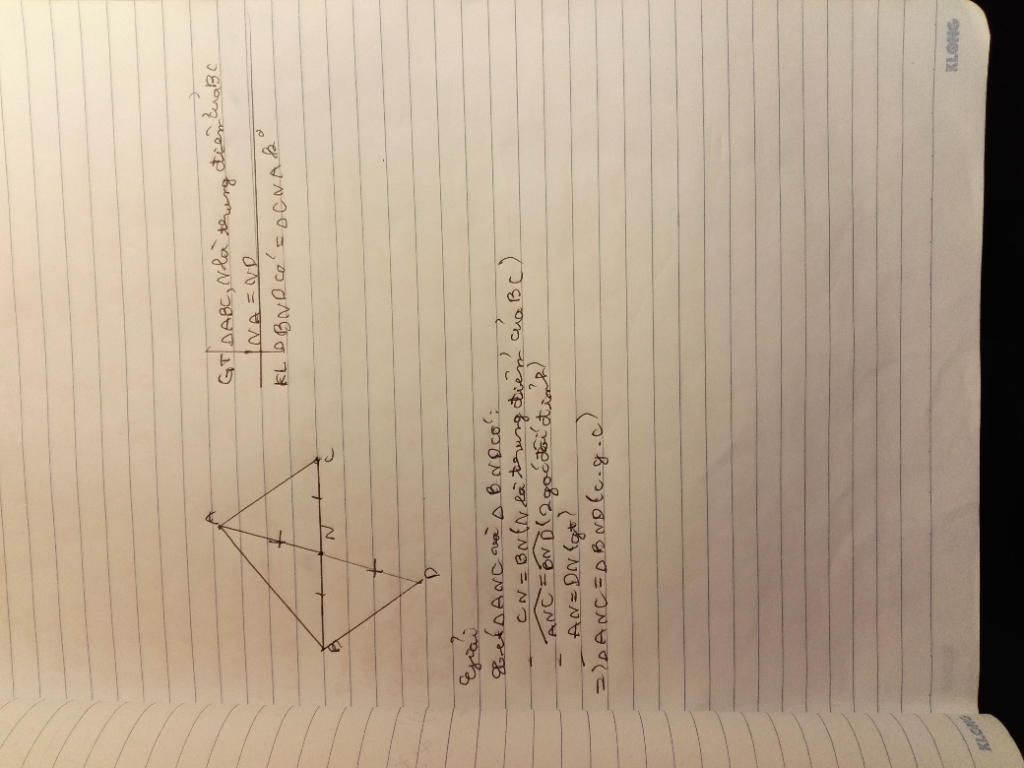 GT ΔABC, N là trung điểm của BC
NA = ND
KL ΔBND có = ΔCNA k°
A
B
N
C
D
Giải
Xét ΔANC và ΔBND có:
- CN = BN (N là trung điểm của BC)
- ANC = BND (2 góc đối đỉnh)
- AN = DN (gt)
=> ΔANC = ΔBND (c.g.c)
KLONG
KLONG